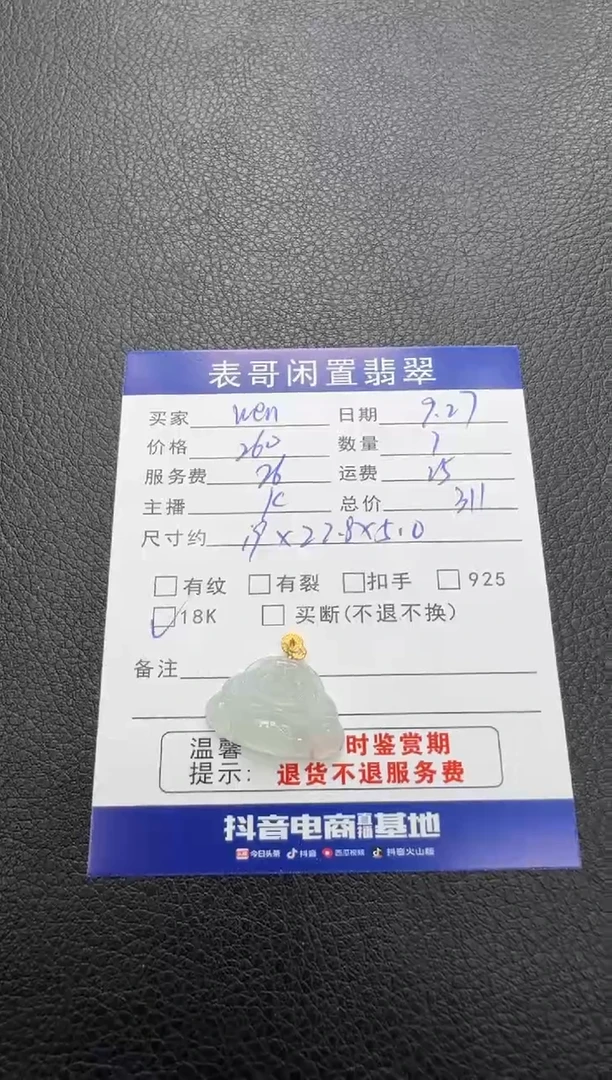 表哥闲置翡翠
买家 wen 日期 9.27
价格 260 数量 1
服务费 26 运费 25
主播 K 总价 311
尺寸约 19×22.8×5.0
有纹 有裂 扣手 925
18K 买断(不退不换)
备注
温馨 时鉴赏期
提示: 退货不退服务费
抖音电商直播基地
今日头条 抖音 西瓜视频 抖音火山版